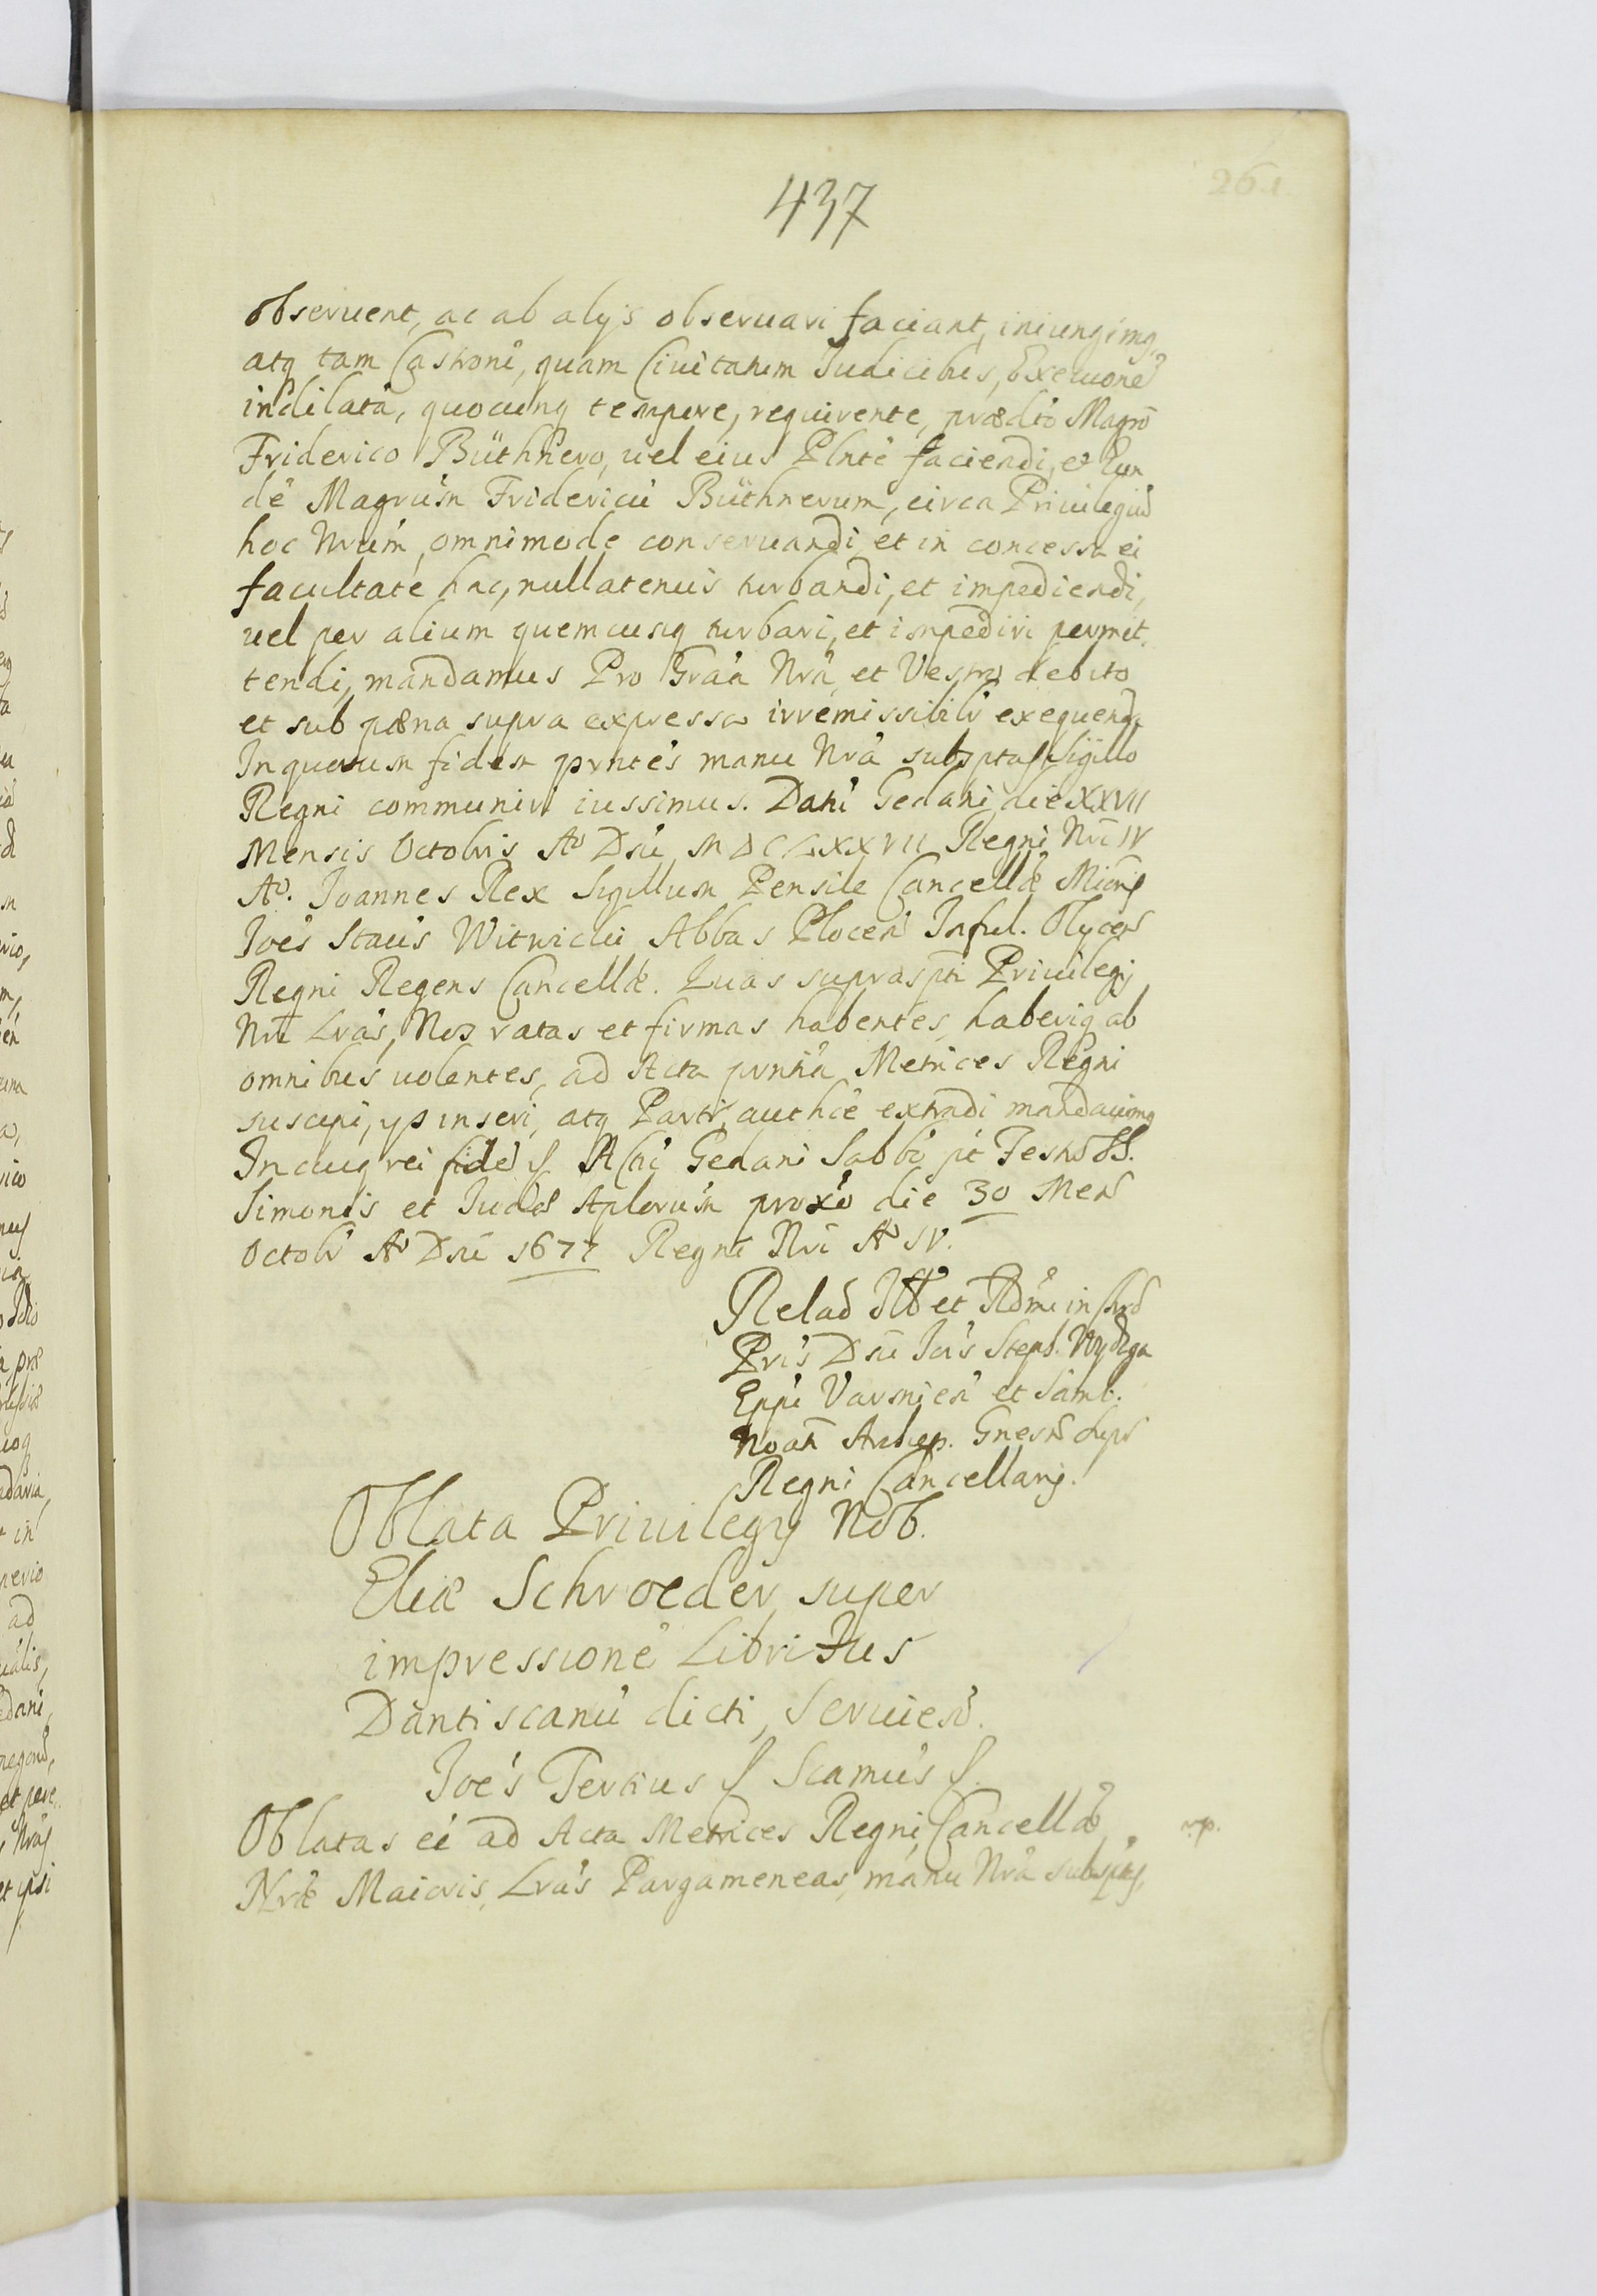 437
261
observent, ac ab alijs observari faciant, iniungimq
atq tam Castroni, quam Civitatum Judicibus, Executione
indilata, quocunq tempore, requirente, prædto Magro
Friderico Büthnero, uel eius Plnte faciendi, et Eun
dē Magrum Fridericū Büthnerum, circa Priuilegiū
hoc Nrum, omnimode conseruandi et in concessa ei
facultate hac, nullatenus turbandi, et impediendi,
uel per alium quemcunq turbari, et impediri permit
tendi, mandamus Pro Gr̃aa Nra, et Vestro debito
et sub pæna supra expressa irremissibilr exequenda
In quorum fidem prntes manu Nra subsptas Sigillo
Regni communiri iussimus. Dati Gedani die XXVII
Mensis Octobris Ao Dni MDCLXXVII Regni Nri IV
Ao. Joannes Rex Sigillum Pensile Cancellæ Mioris
Joes Staus Witwicki Abbas Plocen Inful. Olycen
Regni Regens Cancellæ. Quas suprasptī Priuilegij
Nri Lras, Nos ratas et firmas habentes, haberiq ab
omnibus uolentes, ad Acta prntia Metrices Regni
suscipi, ys inseri, atq Parti authce extradi mandauimq
In cuiq rei fidē ſ. A(hi Gedani Sabbo pt Festū SS.
Simonis et Judæ Aplorum proxo die 30 Mens
Octobr Ao Dni 1677 Regni Nri Ao IV.
Relao Illt et Rdmi in Chro
Pris Dni Jois Steph. Wydzga
Eppi Varmien et Samb.
Noāti Archiep. Gnesn supr
Regni Cancellarij.
Oblata Priuilegij Nob.
Eliæ Schroeder, super
impressionē Libri Jus
Dantiscanū dicti, Seruien.
Joes Tertius ſ Scamus ſ.
Oblatas ei ad Acta Metrices Regni, Cancellæ
Nræ Maioris, Lras Pargameneas, manu Nra subsptas,